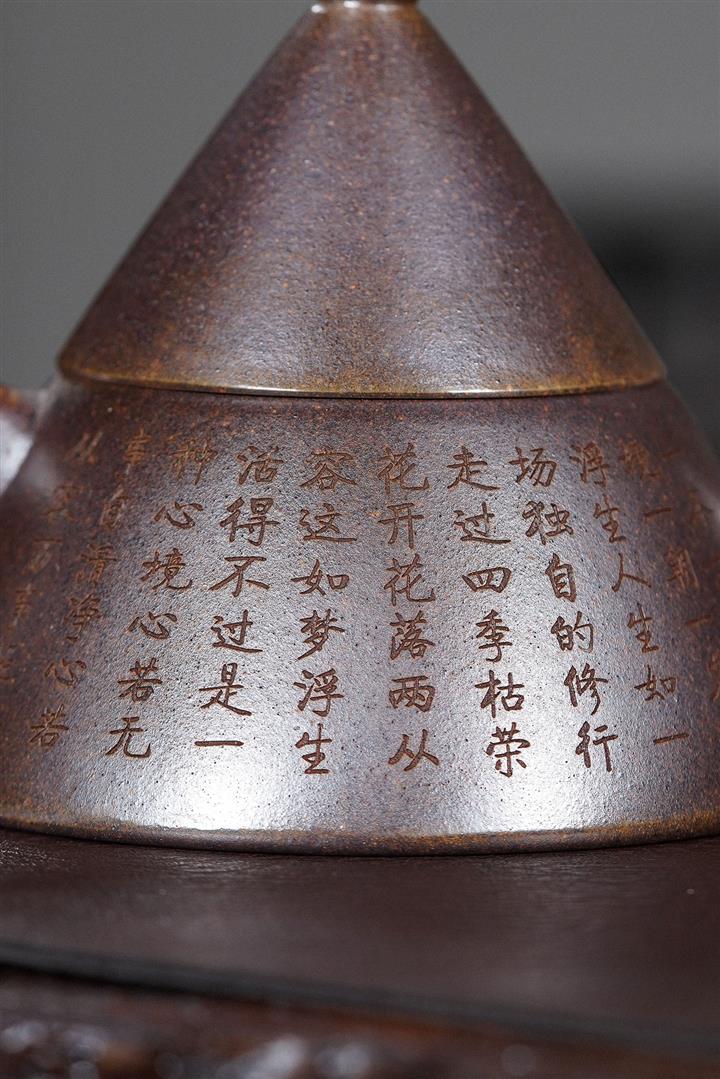 一朝一
浮生人生如一
场独自的修行
走过四季枯荣
花开花落两从
容这如梦浮生
活得不过是一
种心境心若无
自清净心若